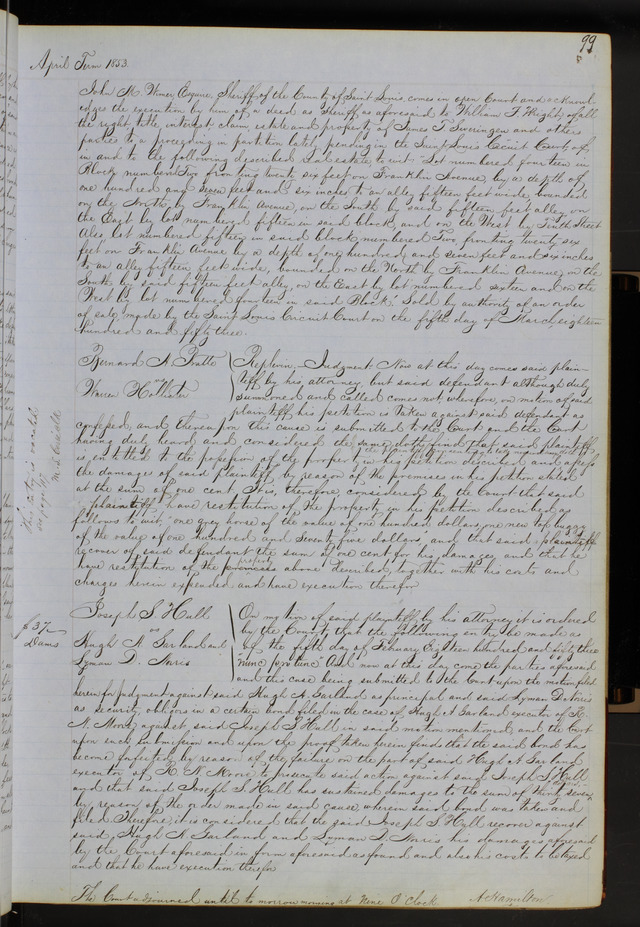 99
April Term 1853.
John M. Wimer Esquire, Sheriff of the County of Saint Louis, comes in open Court and acknowl-
edges the execution by him of a deed as Sheriff as aforesaid to William T. Wright, of all
the right title, interest claim, estate and property of James T. Sweringen and others
parties to a proceeding in partition lately pending in the Saint Louis Circuit Court of,
in and to the following described real estate to wit: Lot numbered fourteen in
Block numbered Two fronting twenty six feet on Franklin Avenue, by a depth of
one hundred and seven feet and six inches to an alley fifteen feet wide, bounded
on the North by Franklin Avenue, on the South by said fifteen feet alley, on
the East by lot numbered fifteen in said block, and on the West by Tenth Street
Also, lot numbered fifteen in said block numbered Two, fronting twenty six
feet on Franklin Avenue by a depth of one hundred and seven feet and six inches
to an alley fifteen feet wide, bounded on the North by Franklin Avenue, on the
South by said fifteen feet alley, on the East by lot numbered sixteen and on the
West by lot numbered fourteen in said Block. Sold by authority of an order
of sale, made by the Saint Louis Circuit Court on the fifth day of March, eighteen
hundred and fifty three.
Bernard A. Pratte
vs
Warren Hollister
Replevin, Judgment. Now at this day comes said plain-
tiff, by his attorney, but said defendant although duly
summoned and called comes not, wherefore, on motion of said
plaintiff, his petition is taken against said defendant as
confessed, and thereupon this cause is submitted to the Court and the Court
having duly heard and considered the same, doth find that said plaintiff
is entitled to the possession of the property in his petition described and assess
the damage of said plaintiff by reason of the premises in his petition stated
at the sum of one cent. It is, therefore, considered by the Court that said
plaintiff have restitution of the property in his petition described as
follows to wit, "one grey horse of the value of one hundred dollars, one new top buggy
of the value of one hundred and seventy five dollars," and that said plaintiff
recover of said defendant the sum of one cent for his damages, and that he
have restitution of the property above described, together with his costs and
charges herein expended, and have execution therefor
This entry is vacated
see page
$37.
Dams
Joseph S. Hull
vs
Hugh A. Garland and
Lyman D. Norris
On motion of said plaintiff, by his attorney it is ordered
by the Court, that the following entry be made as
of the fifth day of February Eighteen hundred and fifty three
"nunc pro tunc" And now at this day come the parties aforesaid
and this case being submitted to the Court upon the motion filed
herein for judgment against said Hugh A. Garland as principal and said Lyman D. Norris
as security, obligors in a certain bond, filed in the case of Hugh A Garland executor of H.
N. Moore, against said Joseph S. Hull in said motion mentioned, and the Court
upon such submission and upon the proof taken herein finds that the said bond has
become forfeited by reason of the failure on the part of said Hugh A. Garland
executor of H. N. Moore, to prosecute said action against said Joseph S. Hull
and that said Joseph S. Hull has sustained damages to the sum of thirty seven
by reason of the order made in said cause wherein said bond was taken and
filed Therefore, it is considered that the said Joseph S. Hull recover against
said Hugh A. Garland and Lyman D. Norris his damages aforesaid
by the Court aforesaid in form aforesaid as found and also his costs to be taxed
and that he have execution therefor
The Court adjourned until to morrow morning at Nine O'Clock.
A. Hamilton